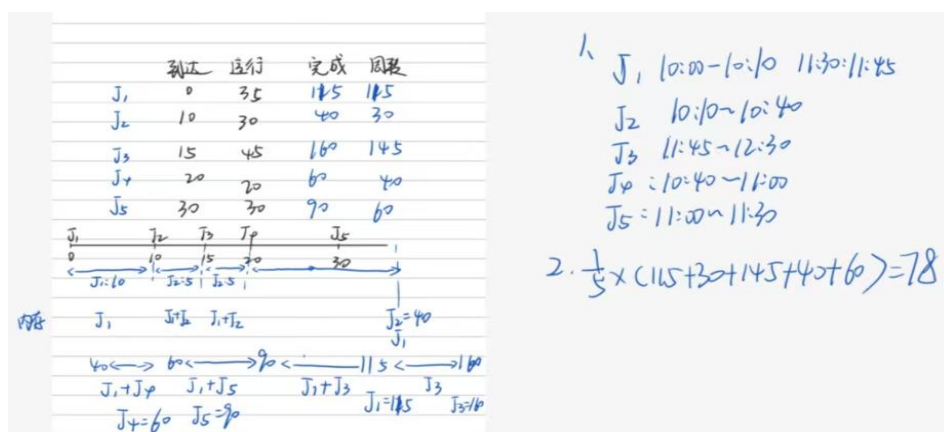 到达 运行 完成 周转
J1 0 35 115 115
J2 10 30 40 30
J3 15 45 160 145
J4 20 20 60 40
J5 30 30 90 60
J1 J2 J3 J4 J5
0 10 15 20 30
J1:10 J2:5 J2:5
内存 J1 J1+J2 J1+J2 J2=40
J1
40 60 90 115 160
J1+J4 J1+J5 J1+J3 J3
J4=60 J5=90 J1=115 J3=160
1、
J1 10:00-10:10 11:30:11:45
J2 10:10~10:40
J3 11:45~12:30
J4:10:40~11:00
J5:11:00~11:30
2. 1/5×(115+30+145+40+60)=78